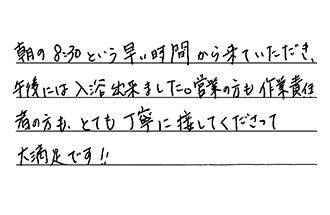 朝の8:30という早い時間から来ていただき、
午後には入浴出来ました。営業の方も作業責任
者の方も、とても丁寧に接してくださって
大満足です!!